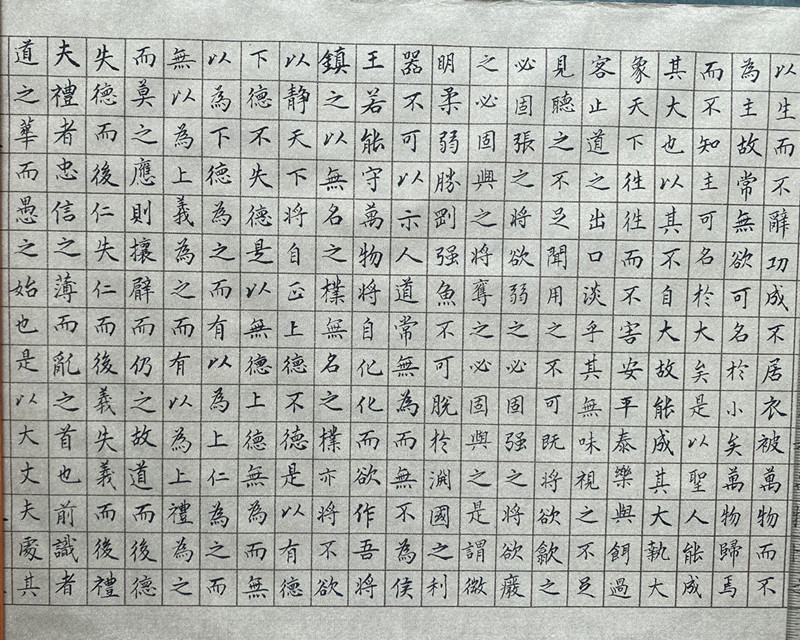 以生而不辭功成不居衣被萬物而不
為主故常無欲可名於小矣萬物歸焉
而不知主可名於大矣是以聖人能成
其大也以其不自大故能成其大執大
象天下徃徃而不害安平泰樂與餌過
客止道之出口淡乎其無味視之不足
見聽之不足聞用之不可既將欲歙之
必固張之將欲弱之必固强之將欲廢
之必固興之將奪之必固與之是謂微
明柔弱勝剛强魚不可脫於淵國之利
器不可以示人道常無為而無不為侯
王若能守萬物將自化化而欲作吾將
鎮之以無名之樸無名之樸亦將不欲
以静天下將自正上德不德是以有德
下德不失德是以無德上德無為而無
以為下德為之而有以為上仁為之而
無以為上義為之而有以為上禮為之
而莫之應則攘臂而仍之故道而後德
失德而後仁失仁而後義失義而後禮
夫禮者忠信之薄而亂之首也前識者
道之華而愚之始也是以大丈夫處其